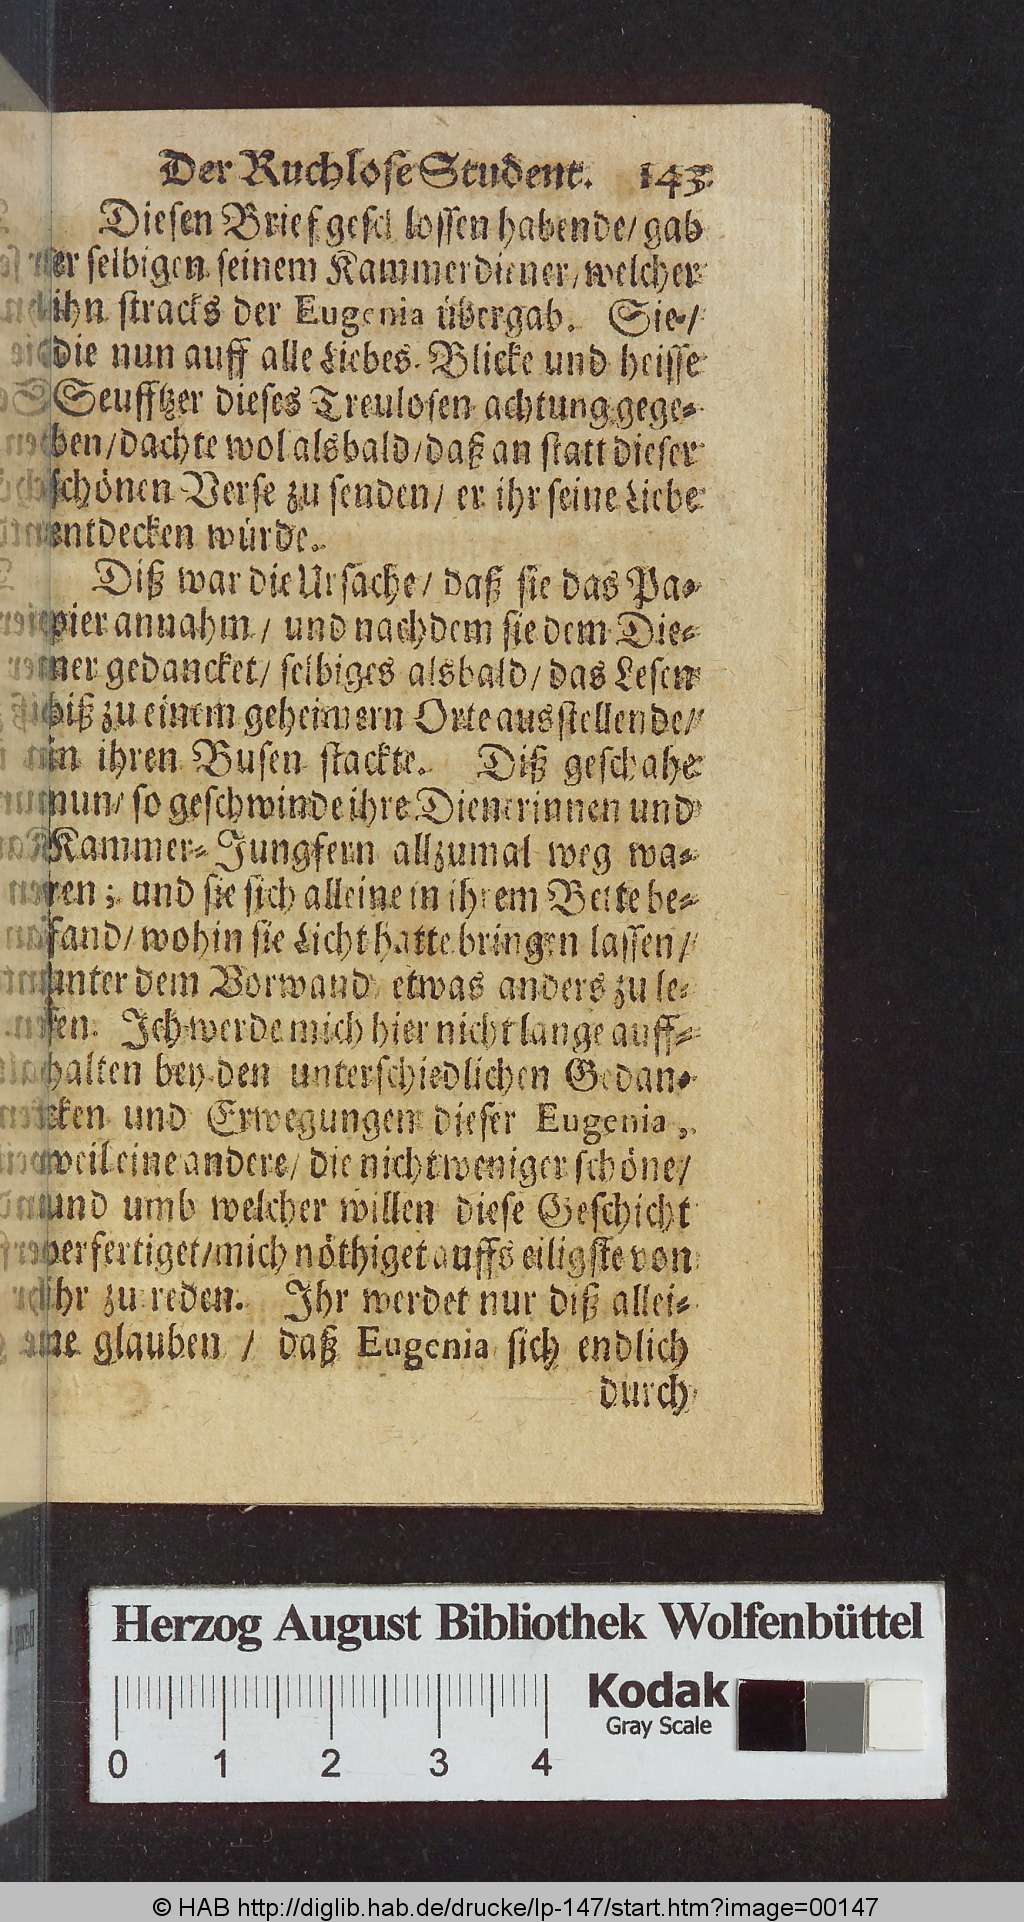 Der Ruchlose Student. 143
Diesen Brief geschlossen habende/ gab
er selbigen seinem Kammerdiener/ welcher
ihn stracks der Eugenia übergab. Sie/
die nun auff alle Liebes-Blicke und heisse
Seufftzer dieses Treulosen achtung gege-
ben/ dachte wol alsbald/ daß an statt dieser
schönen Verse zu senden/ er ihr seine Liebe
entdecken würde.
Diß war die Ursache/ daß sie das Pa-
pier annahm/ und nachdem sie dem Die-
ner gedancket/ selbiges alsbald/ das Lesen
biß zu einem geheimern Orte ausstellende/
in ihren Busen stackte. Diß geschahe
nun/ so geschwinde ihre Dienerinnen und
Kammer-Jungfern allzumal weg wa-
ren; und sie sich alleine in ihrem Bette be-
fand/ wohin sie Licht hatte bringen lassen/
unter dem Vorwand etwas anders zu le-
sen. Ich werde mich hier nicht lange auff-
halten bey den unterschiedlichen Gedan-
cken und Erwegungen dieser Eugenia,
weil eine andere/ die nicht weniger schöne/
und umb welcher willen diese Geschicht
verfertiget/ mich nöthiget auffs eiligste von
ihr zu reden. Ihr werdet nur diß allei-
ne glauben / daß Eugenia sich endlich
durch
Herzog August Bibliothek Wolfenbüttel
Kodak
Gray Scale
0 1 2 3 4
© HAB http://diglib.hab.de/drucke/lp-147/start.htm?image=00147